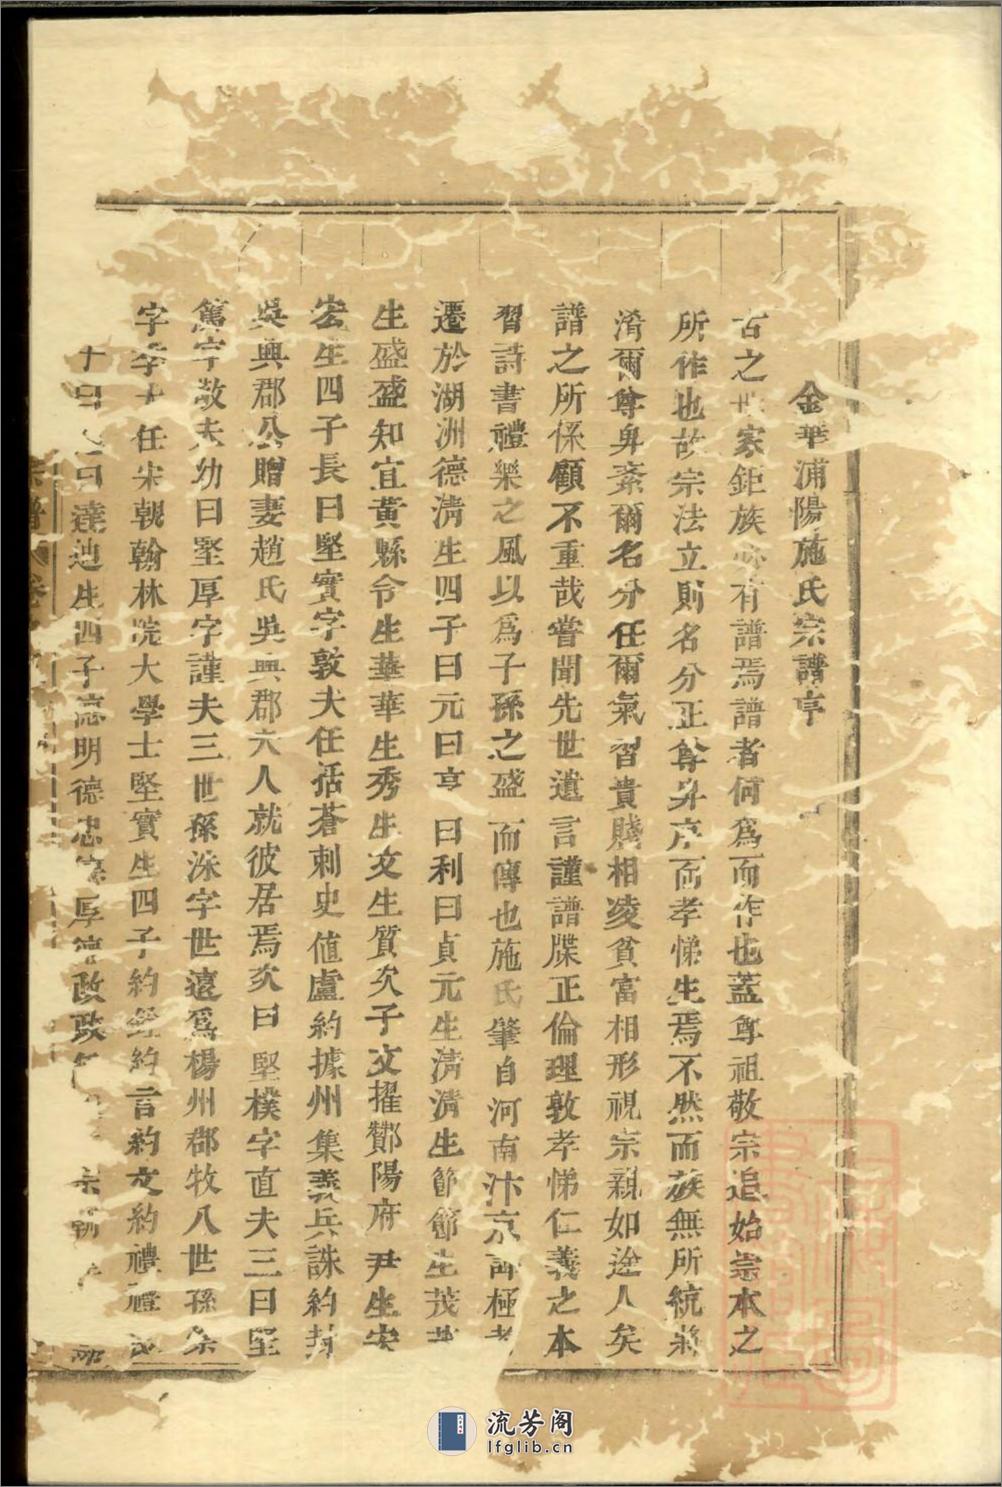 金華浦陽施氏宗譜亨
古之世家鉅族必有譜焉譜者何為而作也蓋尊祖敬宗追始崇本之
所作也故宗法立則名分正尊卑序而孝悌生焉不然而族無所統將
淆爾尊卑紊爾名分任爾氣習貴賤相凌貧富相形視宗親如途人矣
譜之所係顧不重哉嘗聞先世遺言謹譜牒正倫理敦孝悌仁義之本
習詩書禮樂之風以爲子孫之盛而傳也施氏肇自河南汴京 極
遷於湖洲德清生四子曰元曰亨曰利曰貞元生清清生節節生茂
生盛盛知宜黃縣令生華華生秀生文生質次子文擢酇陽府尹生宏
宏生四子長曰堅實字敦夫任括蒼刺史值盧約據州集義兵誅約封
吳興郡公贈妻趙氏吳興郡夫人就彼居焉次曰堅樸字直夫三曰堅
篤字敬夫幼曰堅厚字謹夫三世孫泳字世遠爲楊州郡牧八世孫
字 任宋朝翰林院大學士堅實生四子約 約言約文約禮禮
曰達迪生四子德明德忠 厚德政政
宗譜 卷
流芳阁
lfglib.cn